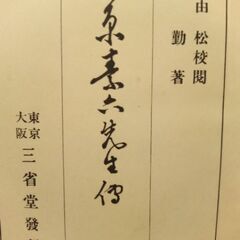 由松校閲
勤著
原素六先生傳
東京
大阪
三省堂發